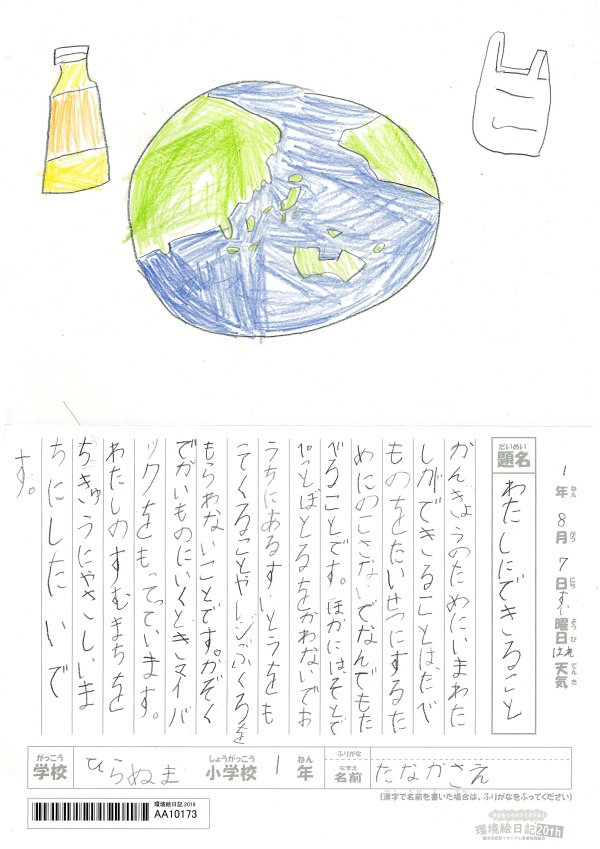 1年8月7日すい曜日はれ天気
ねん がつ にち ようび てんき
だいめい
題名 わたしにできること
かんきょうのためにいまわた
しができることは、たべ
ものをたいせつにするた
めにのこさないでなんでもた
べることです。ほかにはそとで
ぺっとぼとるをかわないでお
うちにあるすいとうをも
ってくることやレジぶくろを
もらわないことです。かぞく
でかいものにいくときマイバ
ックをもってっています。
わたしのすむまちを
ちきゅうにやさしいま
ちにしたいで
す。
がっこう しょうがっこう ねん ふりがな
学校 ひらぬま 小学校 1年 なまえ 名前 たなかさえ
(漢字で名前を書いた場合は、ふりがなをふってください)
環境絵日記2019
AA10173
環境絵日記20th